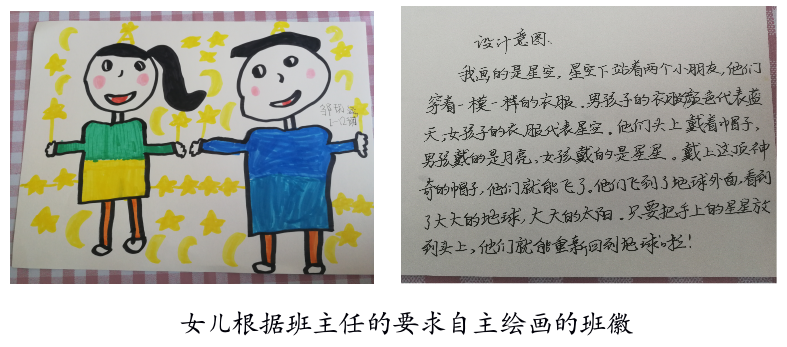 设计意图:
我画的是星空,星空下站着两个小朋友,他们
穿着一模一样的衣服。男孩子的衣服颜色代表蓝
天,女孩子的衣服代表星空。他们头上戴着帽子,
男孩戴的是月亮、女孩戴的是星星。戴上这顶神
奇的帽子,他们就能飞了。他们飞到了地球外面,看到
了大大的地球,大大的太阳。只要把手上的星星放
到头上,他们就能重新回到地球啦!
女儿根据班主任的要求自主绘画的班徽